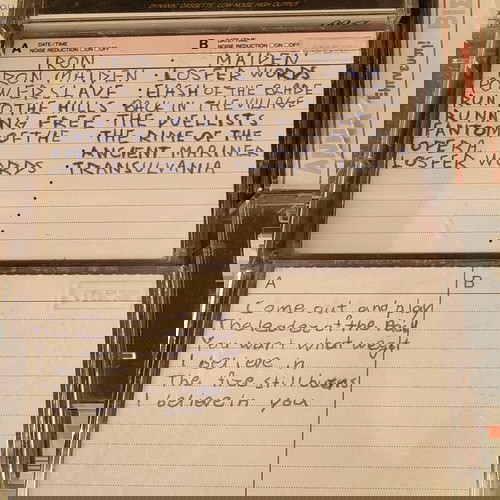 DYNAMIC CASSETTE, LOW NOISE HIGH OUTPUT
A DATE/TIME B DATE/TIME
NOISE REDUCTION □ON □OFF NOISE REDUCTION □ON □OFF
IRON · MAIDEN
IRON MAIDEN · LOSFER WORDS
POWERSLAVE · FLASH OF THE BLADE
RUN TO THE HILLS · BACK IN THE VILLAGE
RUNNING FREE · THE DUELLISTS
FANTOM OF THE · THE RIME OF THE
OPERA · ANCIENT MARINER
LOSFER WORDS · TRANSILVANIA
A B
Come out and play
The leader of the Pack
You want what we got
I believe in
The fire still burns
I believe in you